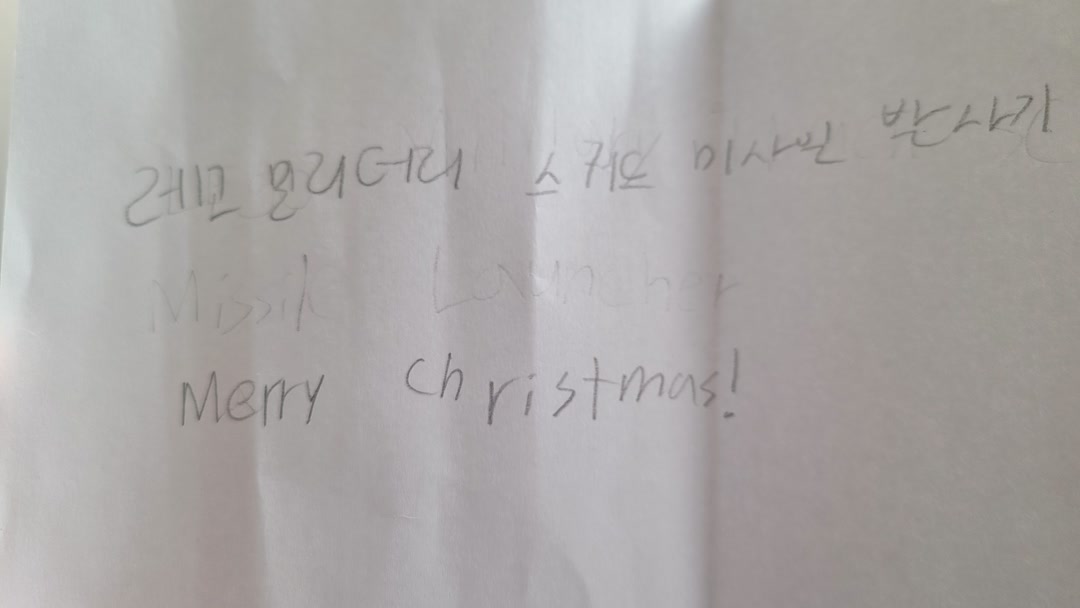 레고 밀리터리 스커드 미사일 발사기
Missil Launcher
Merry Christmas!